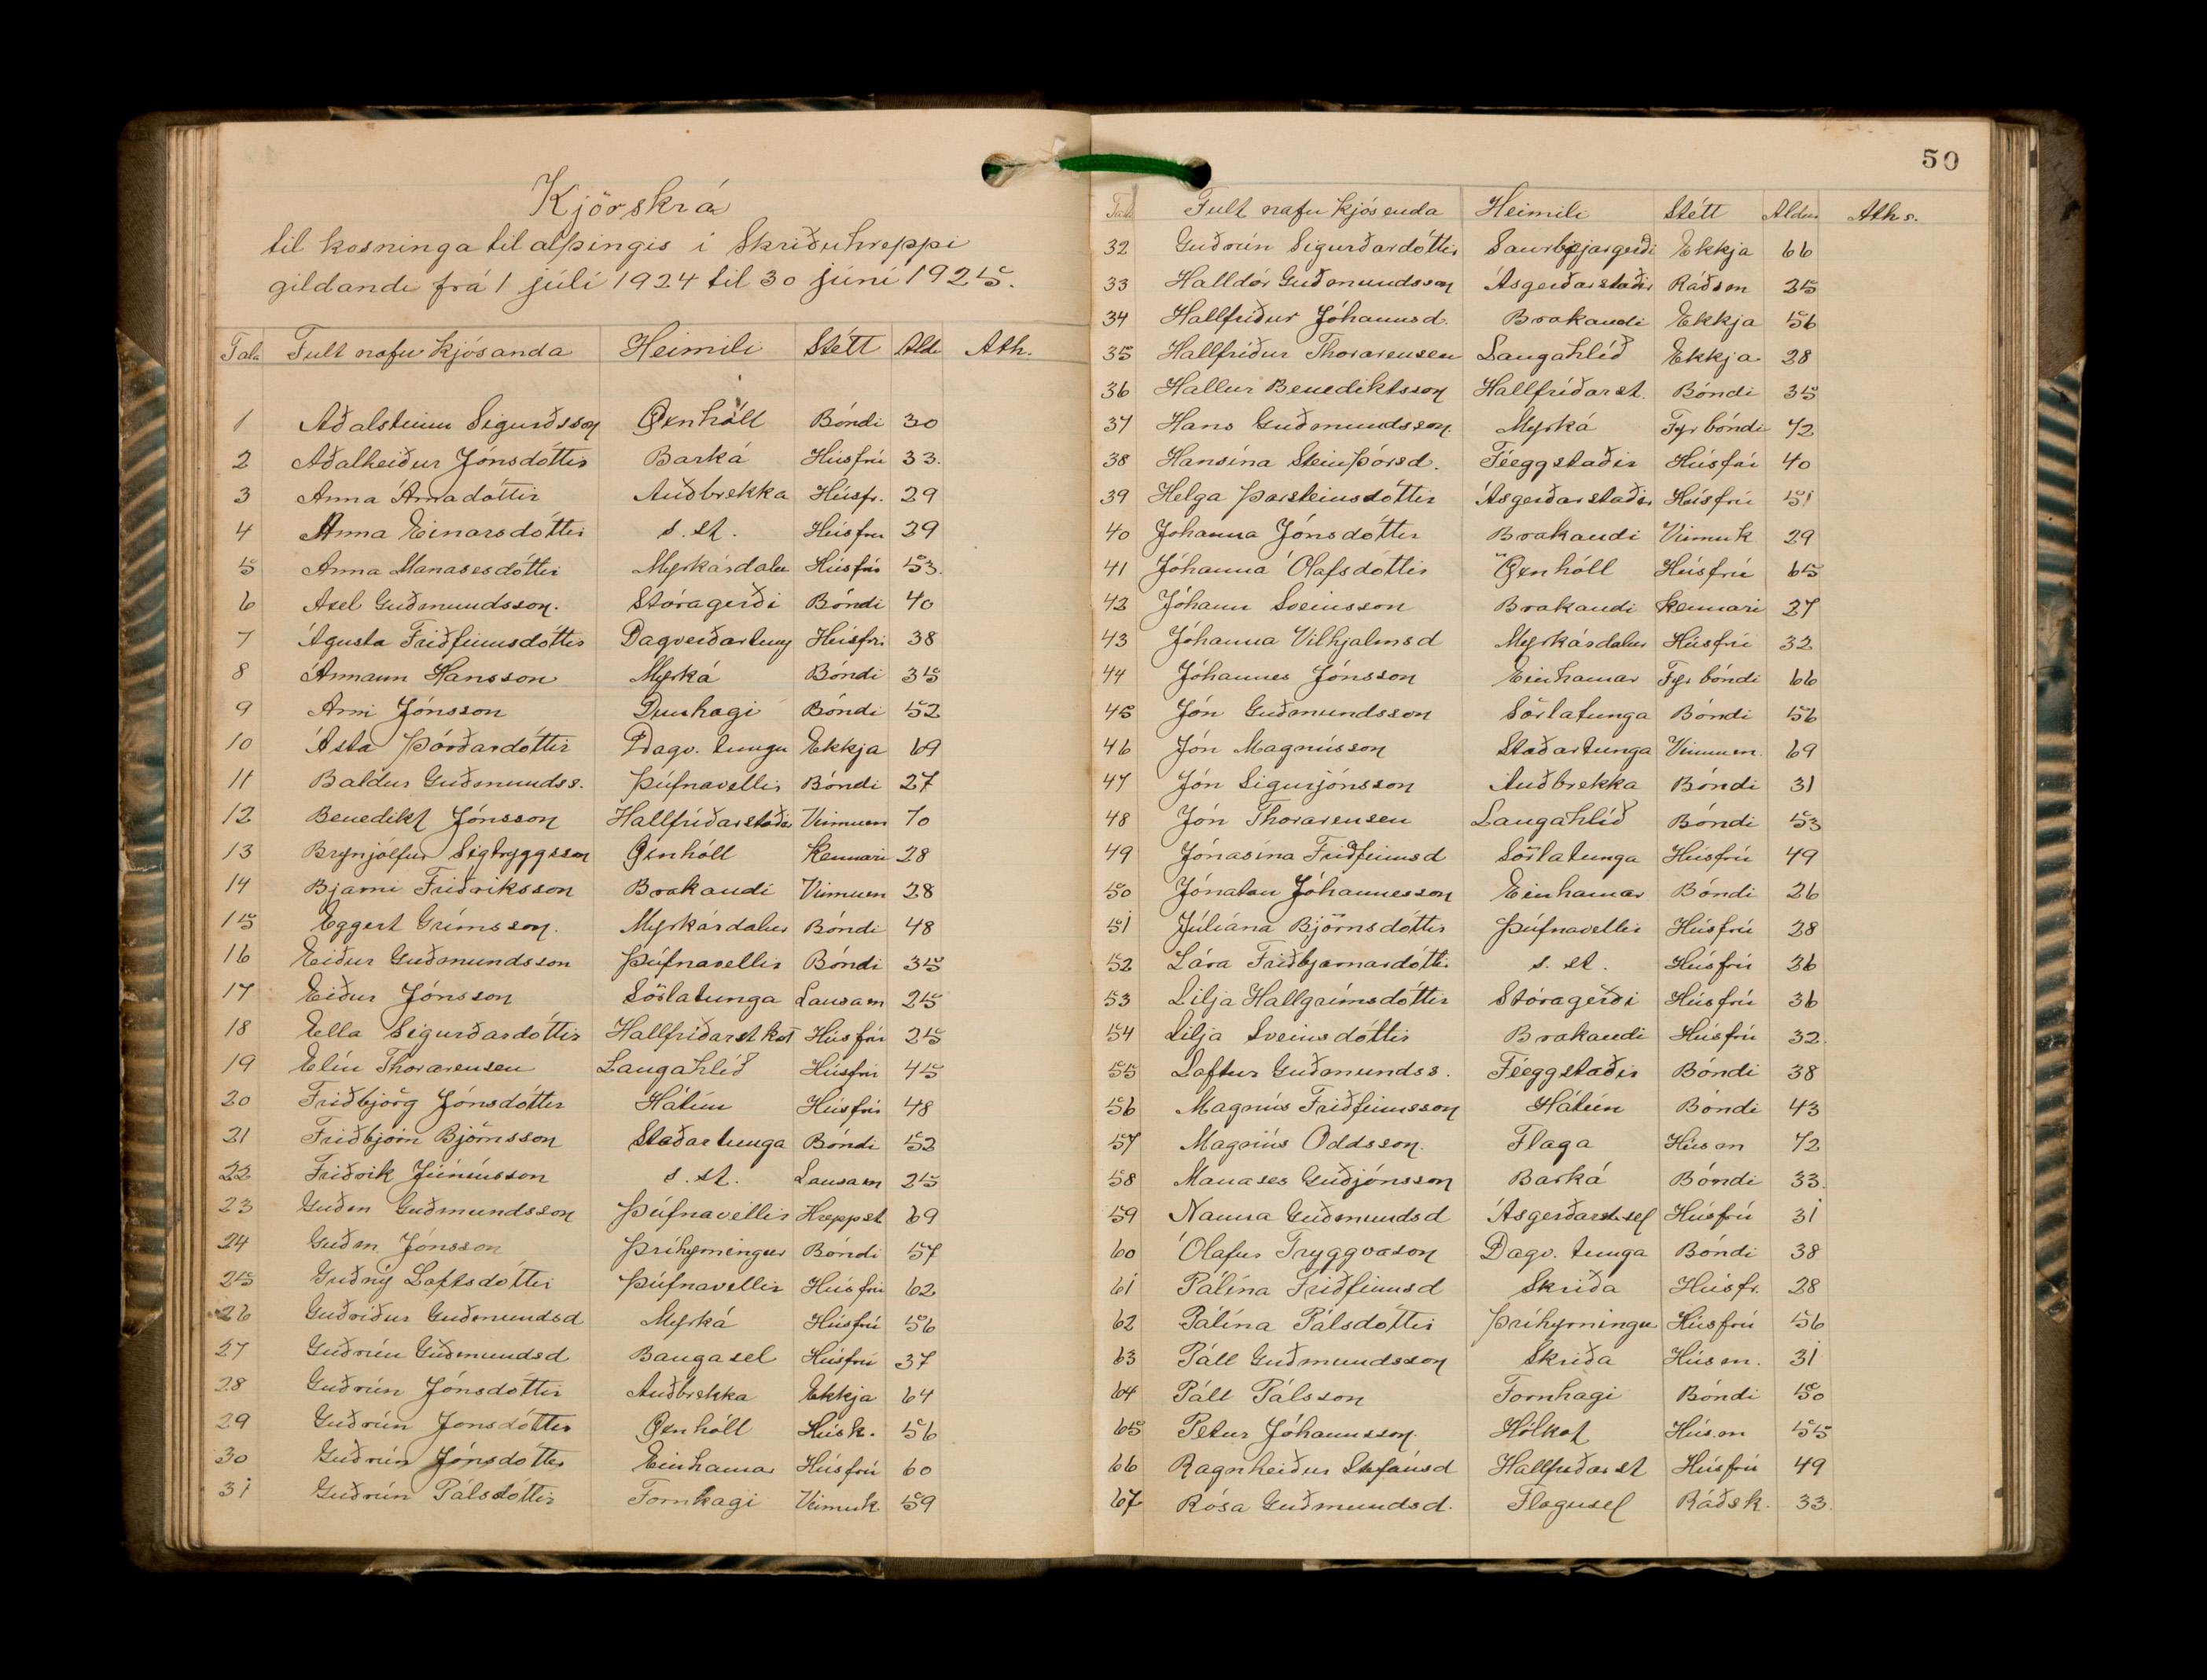 Kjörskrá
til kosninga til alþingis i Skriðuhreppi
gildandi frá 1 júlí 1924 til 30 júní 1925.
Tala Fult nafn kjósanda Heimili Stétt Ald. Ath.
1 Aðalsteinn Sigurðsson Öxnhóll Bóndi 30
2 Aðalheiður Jónsdóttir Barká Húsfrú 33.
3 Anna Árnadóttir Auðbrekka Húsfr. 29
4 Anna Einarsdóttir s. st. Húsfrú 29
5 Anna Manasesdóttir Myrkárdalur Húsfrú 53.
6 Axel Guðmundsson. Stóragerði Bóndi 40
7 Ágústa Friðfinnsdóttir Dagverðartung Húsfrú 38
8 Ármann Hansson Myrká Bóndi 35
9 Arni Jónsson Dunhagi Bóndi 52
10 Ásta Þórðardóttir Dagv. tunga Ekkja 69
11 Baldur Guðmundss. Þúfnavellir Bóndi 27
12 Benedikt Jónsson Hallfríðarstaðir Vinnum 70
13 Brynjólfur Sigtryggsson Öxnhóll Kennari 28
14 Bjarni Friðriksson Brakandi Vinnum 28
15 Eggert Grímsson. Myrkárdalur Bóndi 48
16 Eiður Guðmundsson Þúfnavellir Bóndi 35
17 Eiður Jónsson Sörlatunga Lausam 25
18 Ella Sigurðardóttir Hallfríðarstkot Húsfrú 25
19 Elín Thorarensen Langahlíð Húsfrú 45
20 Friðbjörg Jónsdóttir Hátún Húsfrú 48
21 Friðbjörn Björnsson Staðartunga Bóndi 52
22 Friðrik Júníusson s. st. Lausam 25
23 Guðm Guðmundsson Þúfnavellir Hreppst 69
24 Guðm Jónsson Þríhyrningur Bóndi 57
25 Guðný Loftsdóttir Þúfnavellir Húsfrú 62
26 Guðriður Guðmundsd Myrká Húsfrú 56
27 Guðrún Guðmundsd Baugasel Húsfrú 37
28 Guðrún Jónsdóttir Auðbrekka Ekkja 64
29 Guðrún Jonsdóttir Öxnhóll Húsk. 56
30 Guðrún Jónsdóttir Einhamar Húsfrú 60
31 Guðrún Pálsdóttir Fornhagi Vinnuk 59
50
Tala Fult nafn kjósenda Heimili Stétt Aldur Aths.
32 Guðrún Sigurðardóttir Saurbæjargerði Ekkja 66
33 Halldór Guðmundsson Ásgerðarstaðir Ráðsm 25
34 Hallfríður Jóhannsd. Brakandi Ekkja 56
35 Hallfríður Thorarensen Langahlíð Ekkja 28
36 Hallur Benediktsson Hallfríðarst. Bóndi 35
37 Hans Guðmundsson Myrká Fyr bóndi 72
38 Hansína Steinþórsd. Féeggstaðir Húsfrú 40
39 Helga Þorsteinsdóttir Ásgerðarstaðir Húsfrú 51
40 Johanna Jónsdóttir Brakandi Vinnuk 29
41 Jóhanna Ólafsdóttir Öxnhóll Húsfrú 65
42 Jóhann Sveinsson Brakandi Kennari 27
43 Jóhanna Vilhjalmsd Myrkárdalur Húsfrú 32
44 Jóhannes Jónsson Einhamar Fyr bóndi 66
45 Jón Guðmundsson Sörlatunga Bóndi 56
46 Jón Magnússon Staðartunga Vinnum. 69
47 Jón Sigurjónsson Auðbrekka Bóndi 31
48 Jón Thorarensen Langahlíð Bóndi 53
49 Jónasína Friðfinnsd Sörlatunga Húsfrú 49
50 Jónatan Jóhannesson Einhamar Bóndi 26
51 Júlíána Björnsdóttir Þúfnavellir Húsfrú 28
52 Lára Friðbjarnardóttir s. st. Húsfrú 36
53 Lilja Hallgrímsdóttir Stóragerði Húsfrú 36
54 Lilja Sveinsdóttir Brakandi Húsfrú 32.
55 Loftur Guðmundss. Féeggstaðir Bóndi 38
56 Magnús Friðfinnsson Hátún Bóndi 43
57 Magnús Oddsson. Flaga Húsm 72
58 Manases Guðjónsson Barká Bóndi 33.
59 Nanna Guðmundsd Ásgerðarst.sel Húsfrú 31
60 Ólafur Tryggvason Dagv. tunga Bóndi 38
61 Pálína Friðfinnsd Skriða Húsfr. 28
62 Pálína Pálsdóttir Þríhyrningur Húsfrú 56
63 Páll Guðmundsson Skriða Húsm. 31
64 Páll Pálsson Fornhagi Bóndi 50
65 Petur Jóhannsson. Hólkot Húsm 55
66 Ragnheiður Stefánsd Hallfríðarst Húsfrú 49
67 Rósa Guðmundsd. Flögusel Ráðsk. 33.